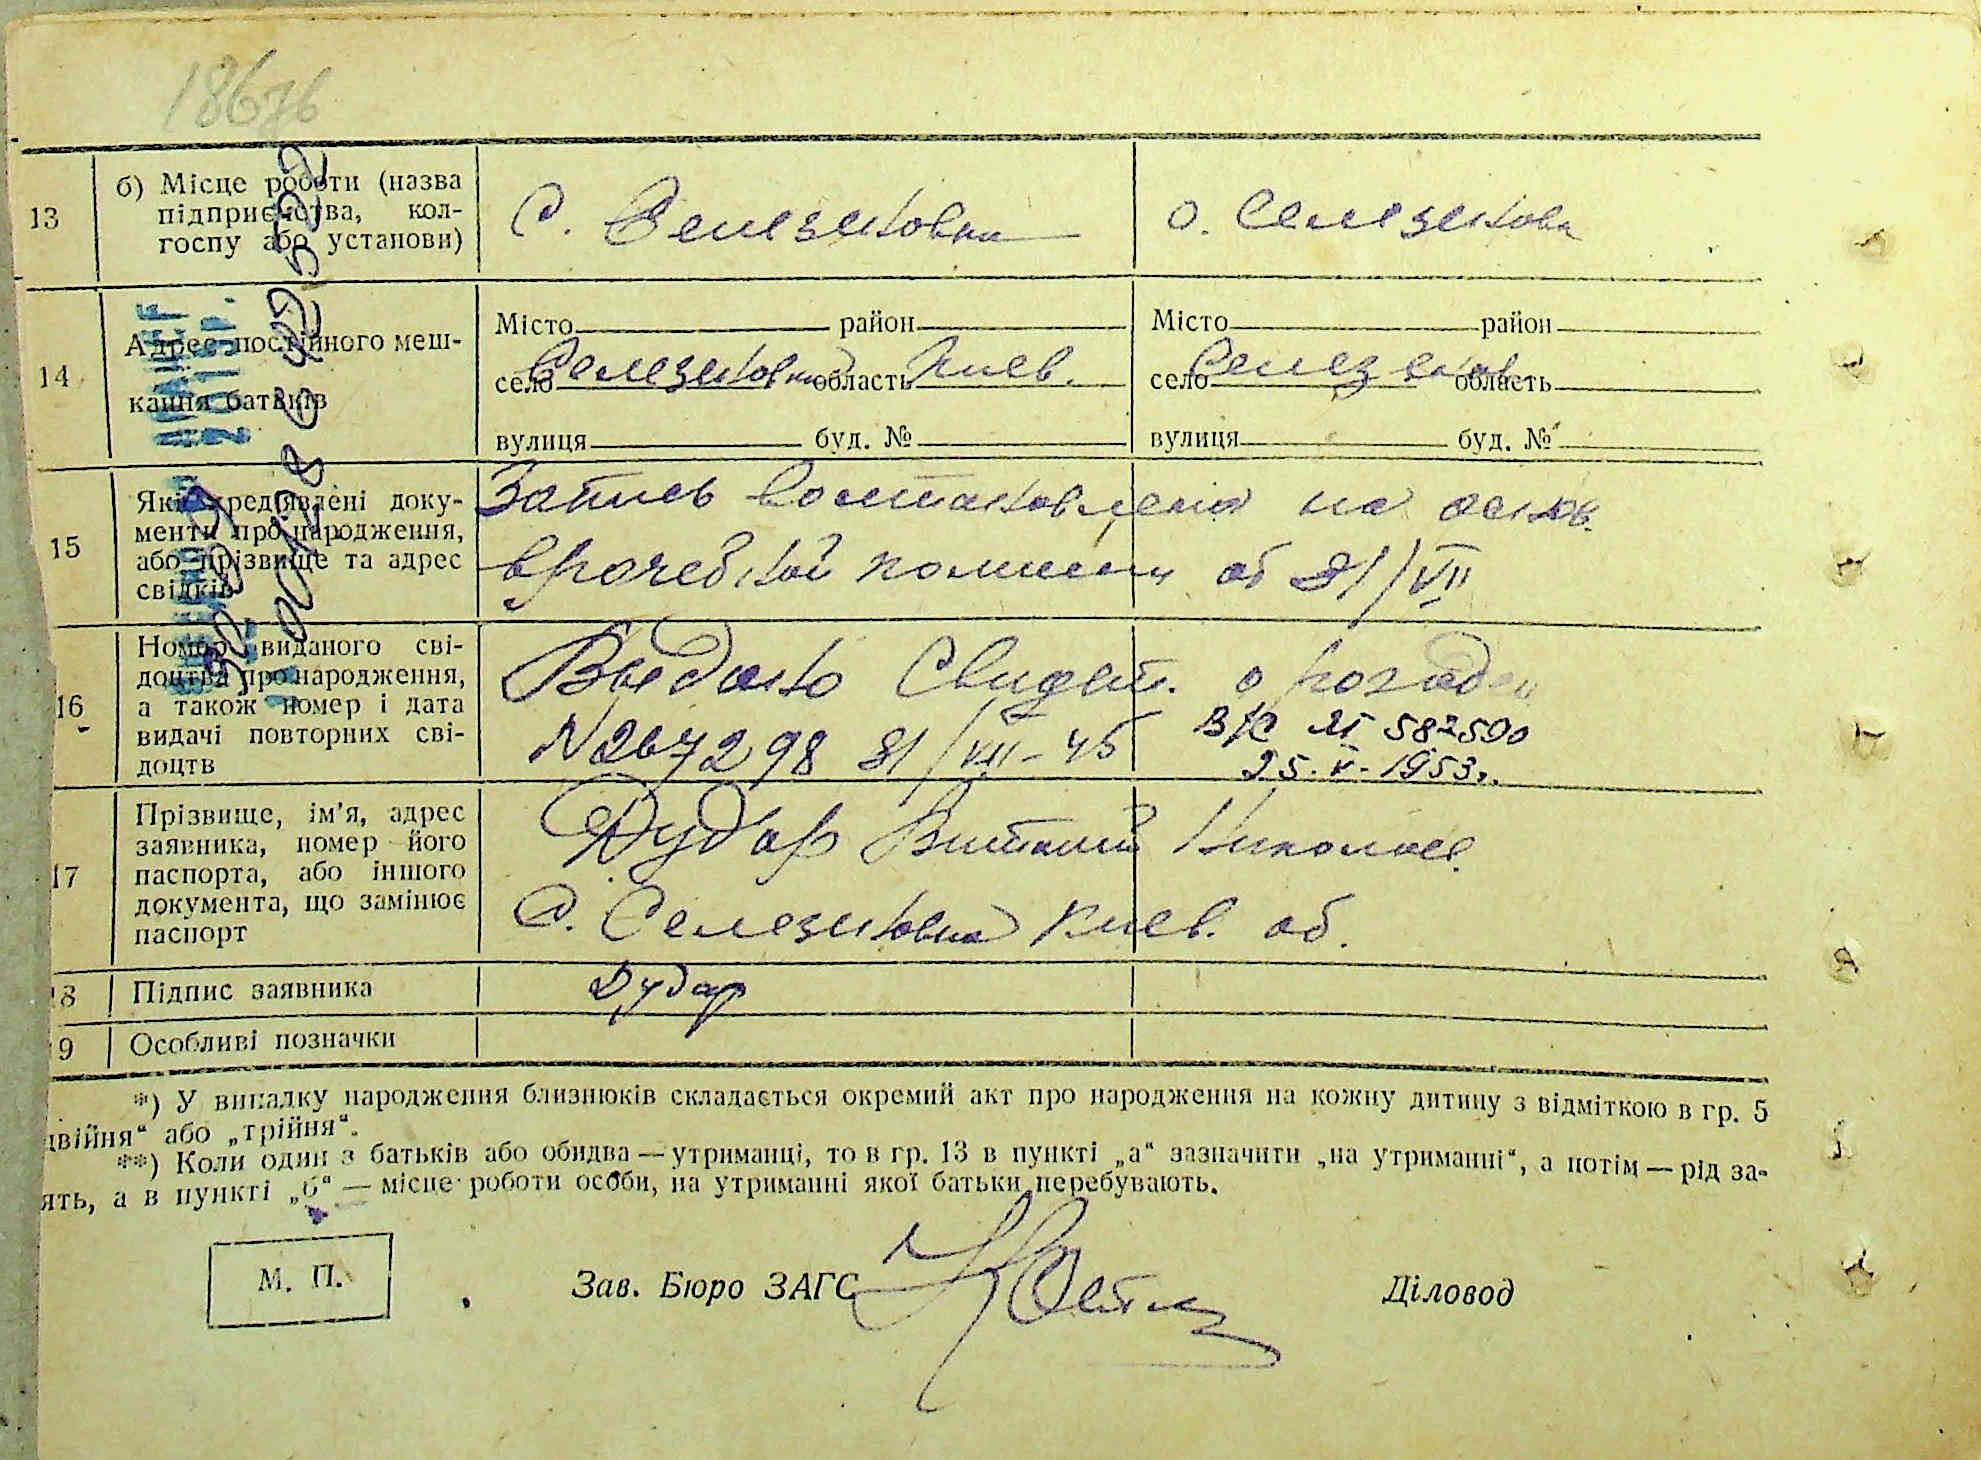 186зв
13
б) Місце роботи (назва
підприємства, кол-
госпу або установи)
с. Селезеновка
с. Селезенова
14
Адрес постійного меш-
кання батьків
Місто район
село Селезеновка область Киев.
вулиця буд. №
Місто район
село Селезенов область
вулиця буд. №
15
Які пред'явлені доку-
менти про народження,
або прізвище та адрес
свідків
Запись востановлена на основ.
врачебной комисии от 31/VII
16
Номер виданого сві-
доцтва про народження,
а також номер і дата
видачі повторних сві-
доцтв
Выдано Свидет. о рожден
N267298 31/VII-45
582590
25.V.1953г.
17
Прізвище, ім'я, адрес
заявника, номер його
паспорта, або іншого
документа, що замінює
паспорт
Дудар Виталий Николаев.
с. Селезеновка Киев. об.
18
Підпис заявника
Дудар
9
Особливі позначки
*) У випадку народження близнюків складається окремий акт про народження на кожну дитину з відміткою в гр. 5
двійня“ або „трійня“.
**) Коли один з батьків або обидва — утриманці, то в гр. 13 в пункті „а“ зазначити „на утриманні“, а потім — рід за-
ять, а в пункті „б“ — місце роботи особи, на утриманні якої батьки перебувають.
М. П.
Зав. Бюро ЗАГС
Діловод